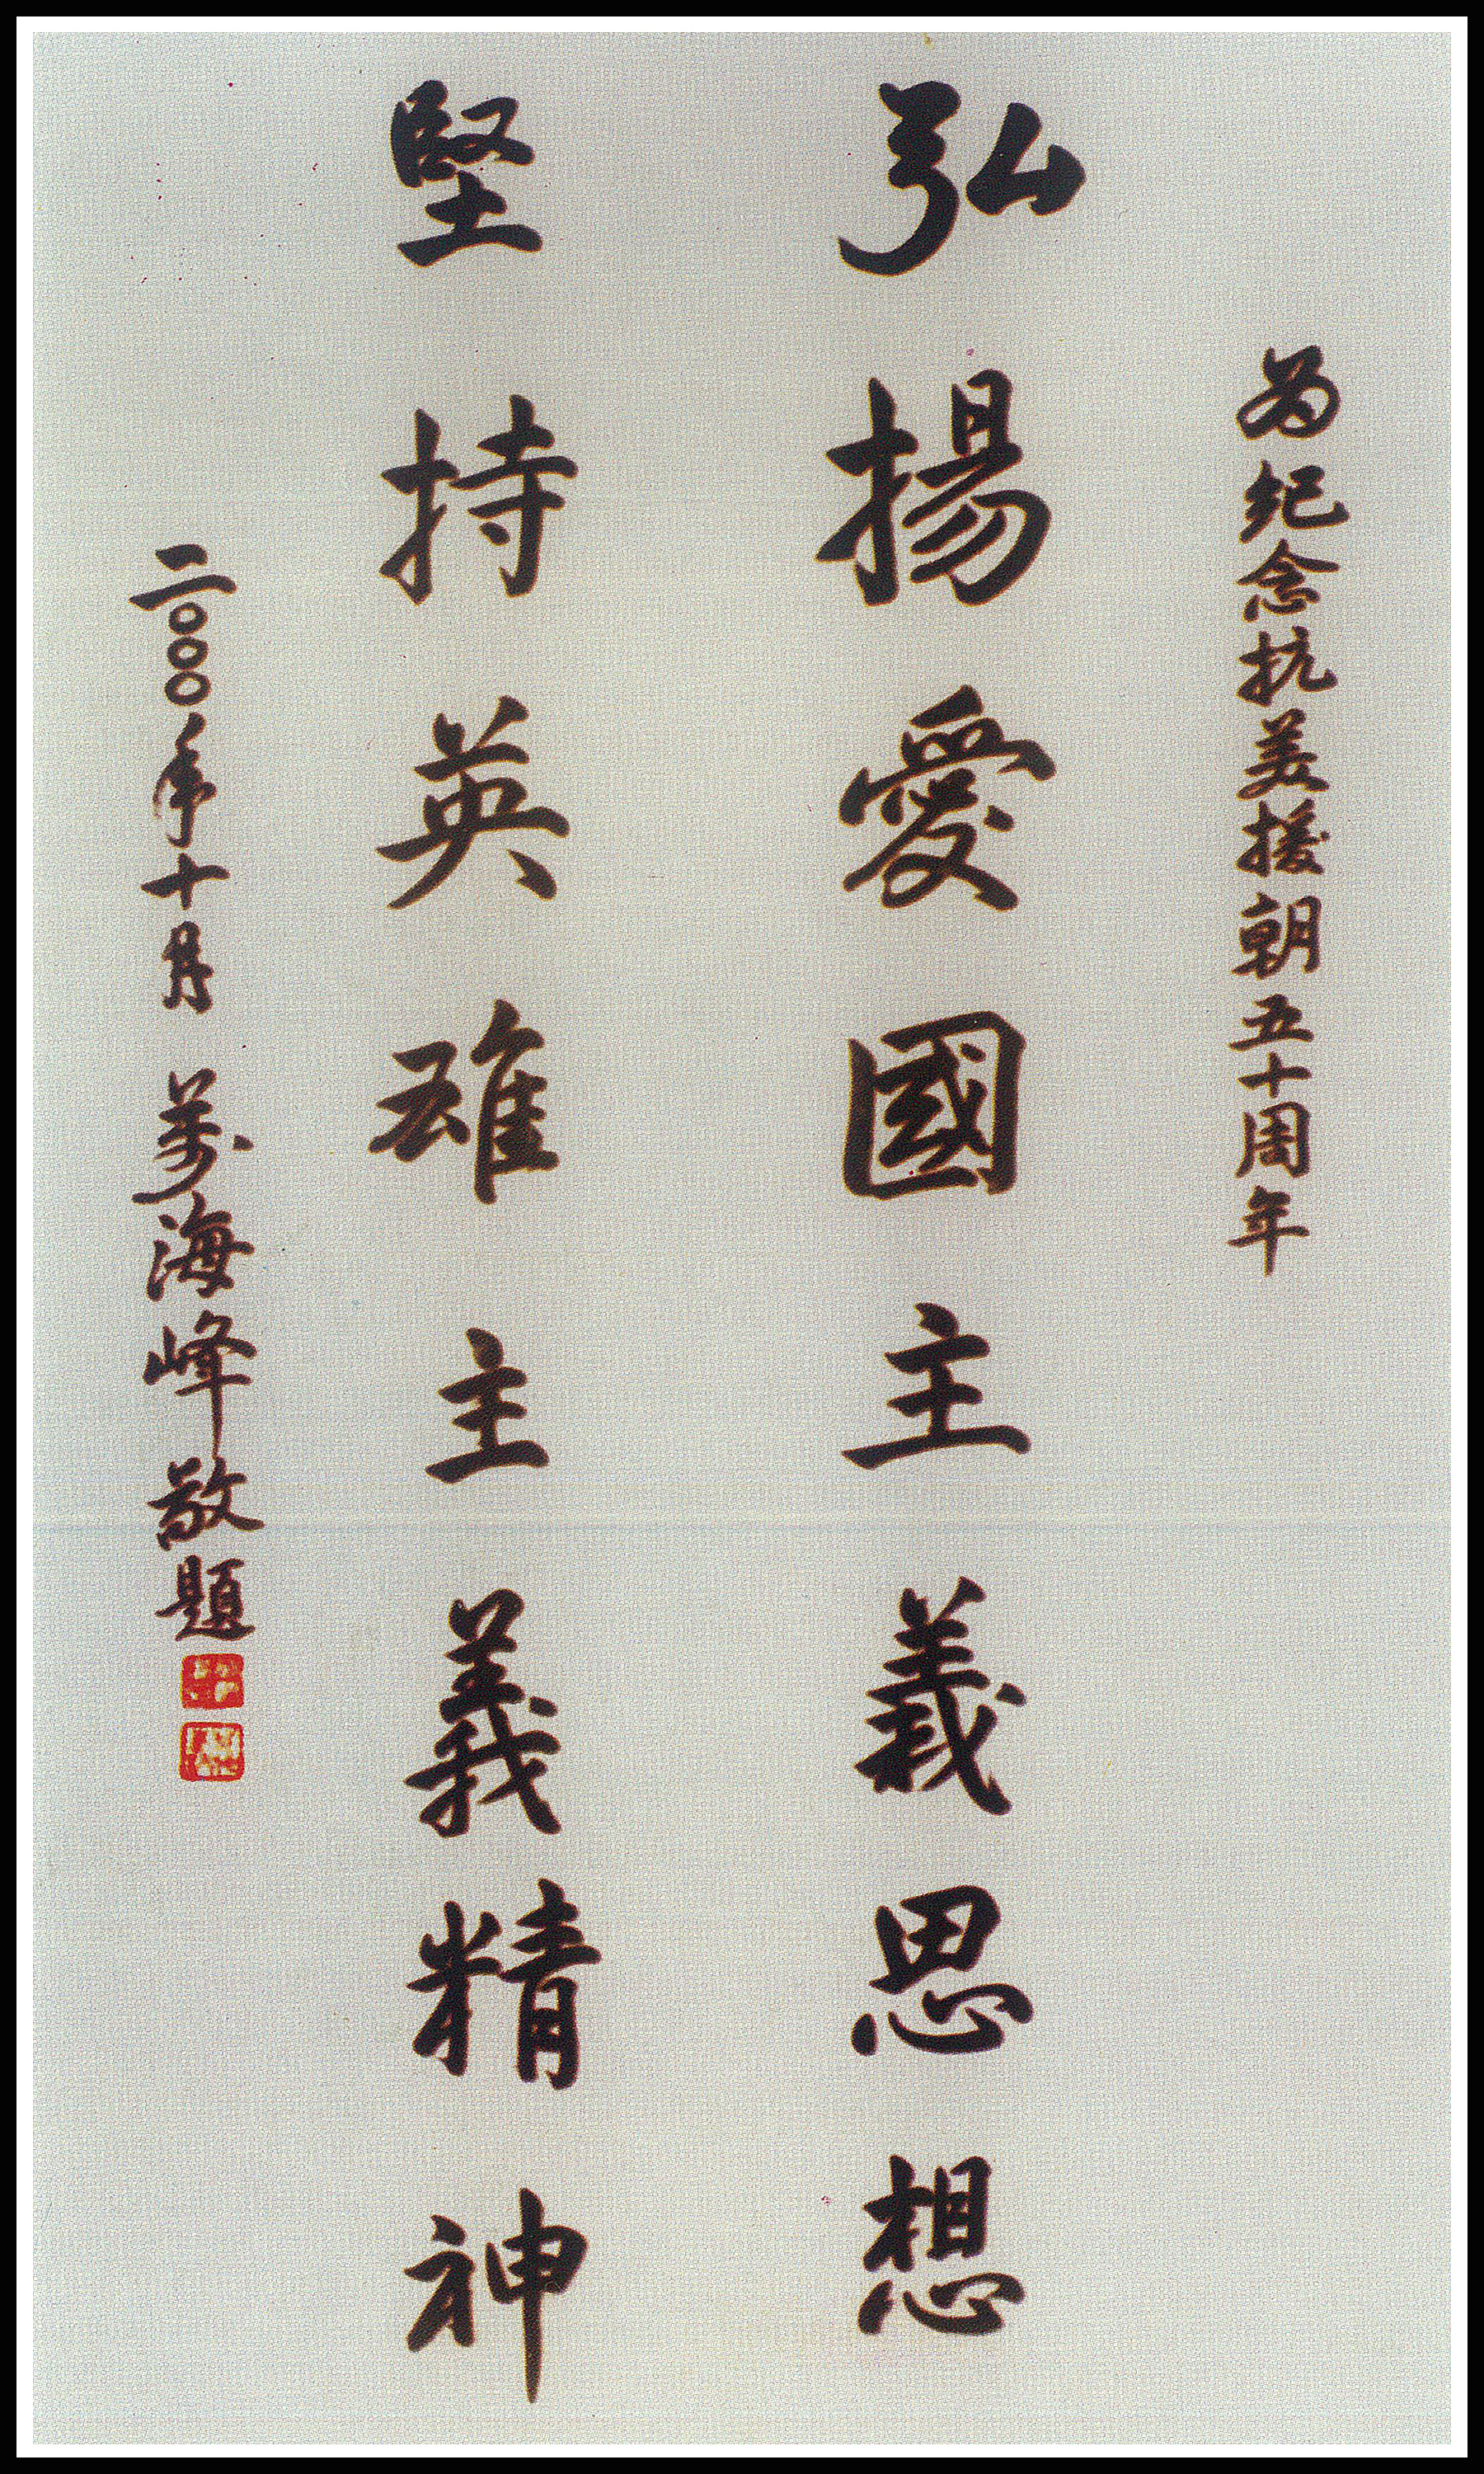 为纪念抗美援朝五十周年
弘揚愛國主義思想
堅持英雄主義精神
二〇〇〇年十月 萬海峰敬題